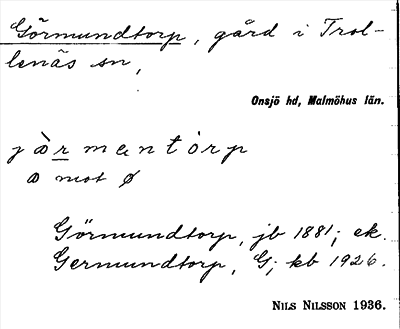 Görmundtorp, gård i Trol-
lenäs sn,
Onsjö hd, Malmöhus län.
mot ø
Görmundtorp, jb 1881; ek.
Germundtorp, G; kb 1926.
NILS NILSSON 1936.